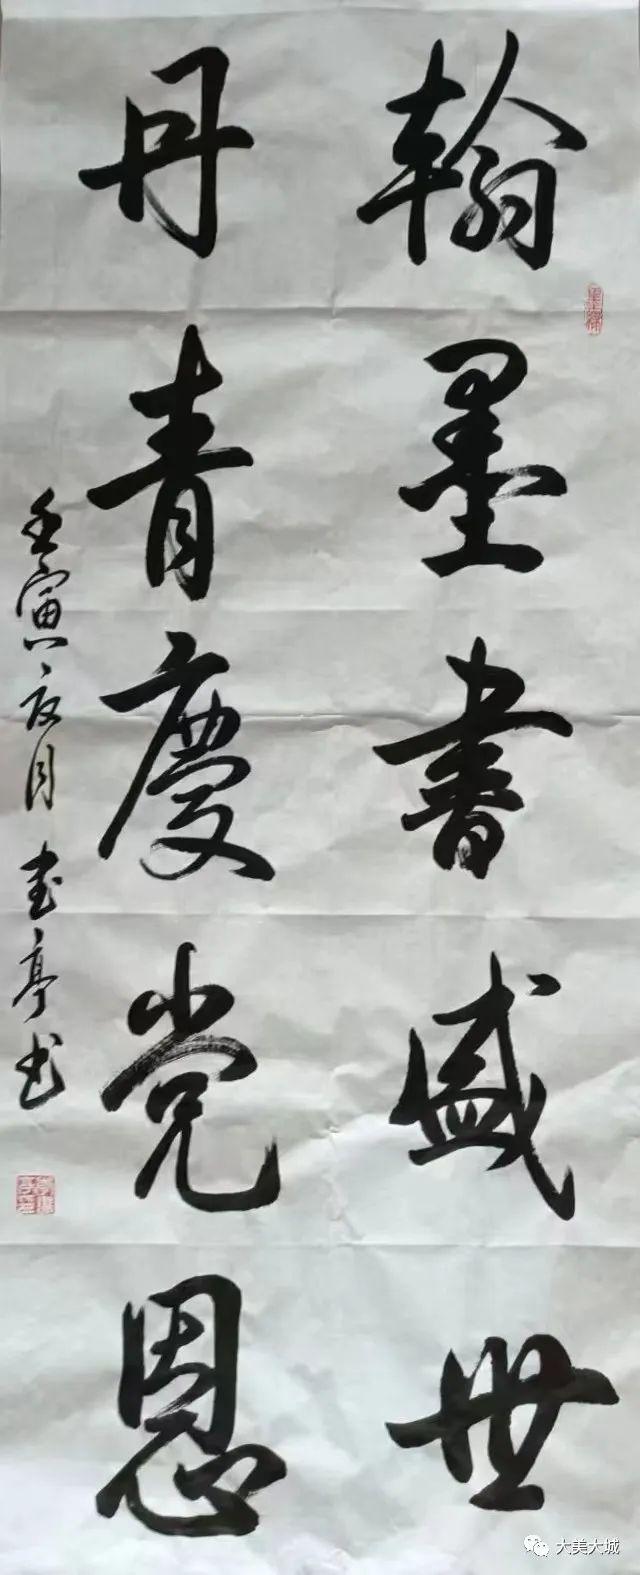 翰墨書盛世
丹青慶党恩
壬寅夏月 書亭书
大美大城